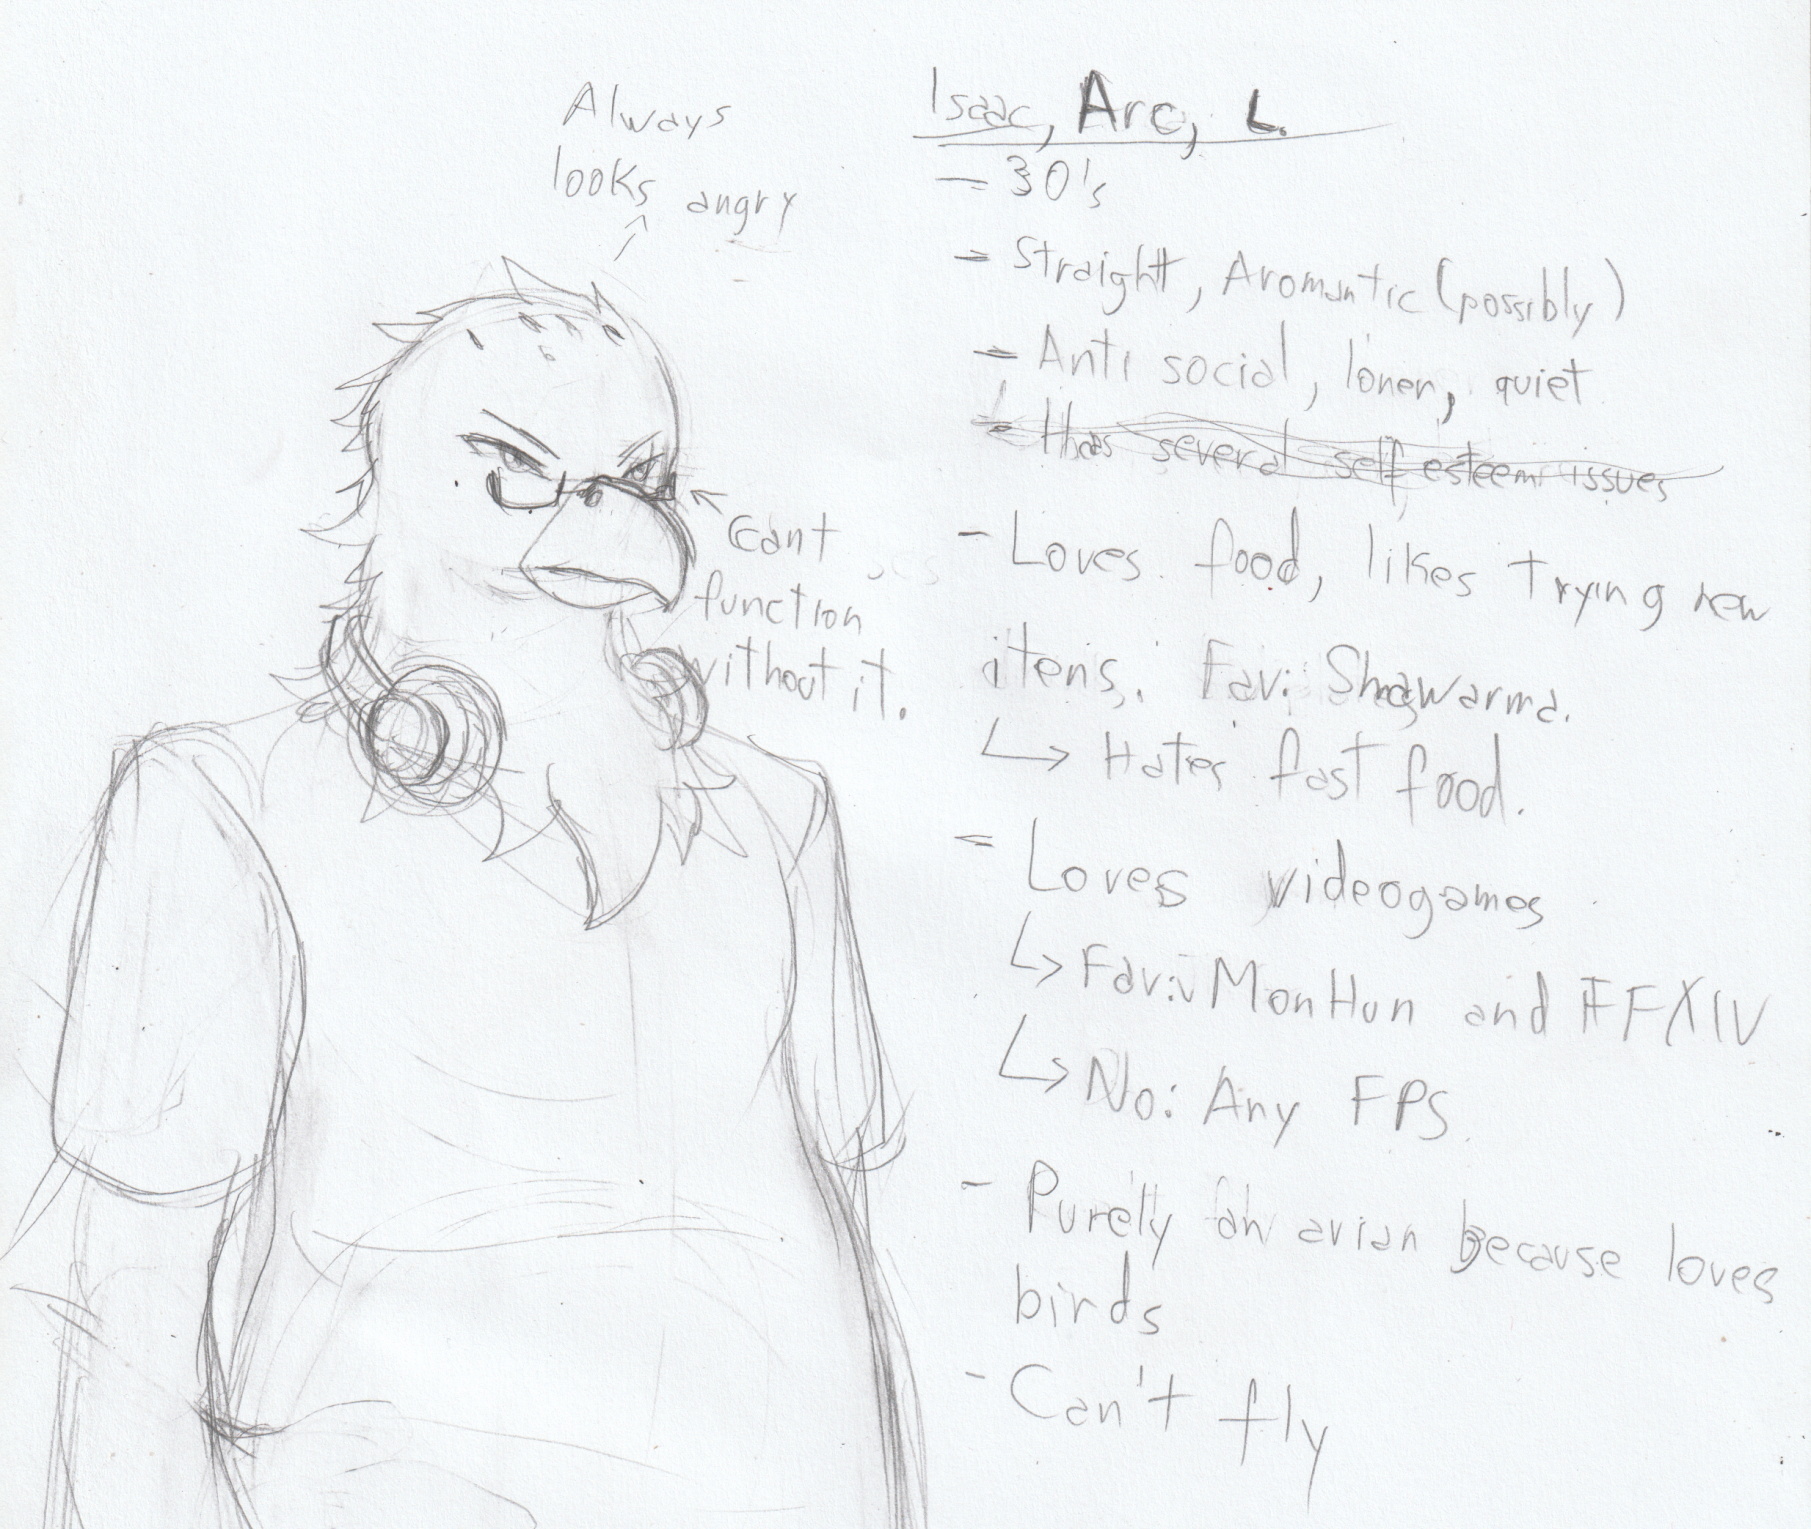 Always
looks angry
Cant
function
without it.
Isaac, Arc, L.
- 30's
- Straight, Aromantic (possibly)
- Anti social, loner, quiet
- Has several self esteem issues
- Loves food, likes trying new
items. Fav: Shawarma.
↳ Hates fast food.
- Loves videogames
↳ Fav: MonHun and FFXIV
↳ No: Any FPS.
- Purely an avian because loves
birds
- Can't fly